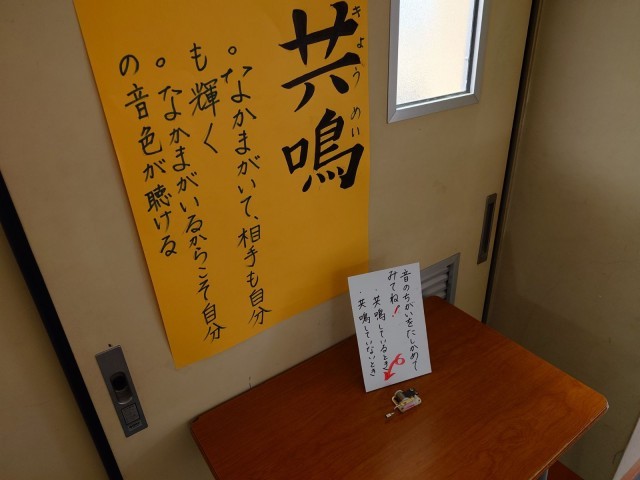 共鳴
きょうめい
。なかまがいて、相手も自分
も輝く
。なかまがいるからこそ自分
の音色が聴ける
音のちがいをたしかめて
みてね!
・共鳴しているとき
・共鳴していないとき